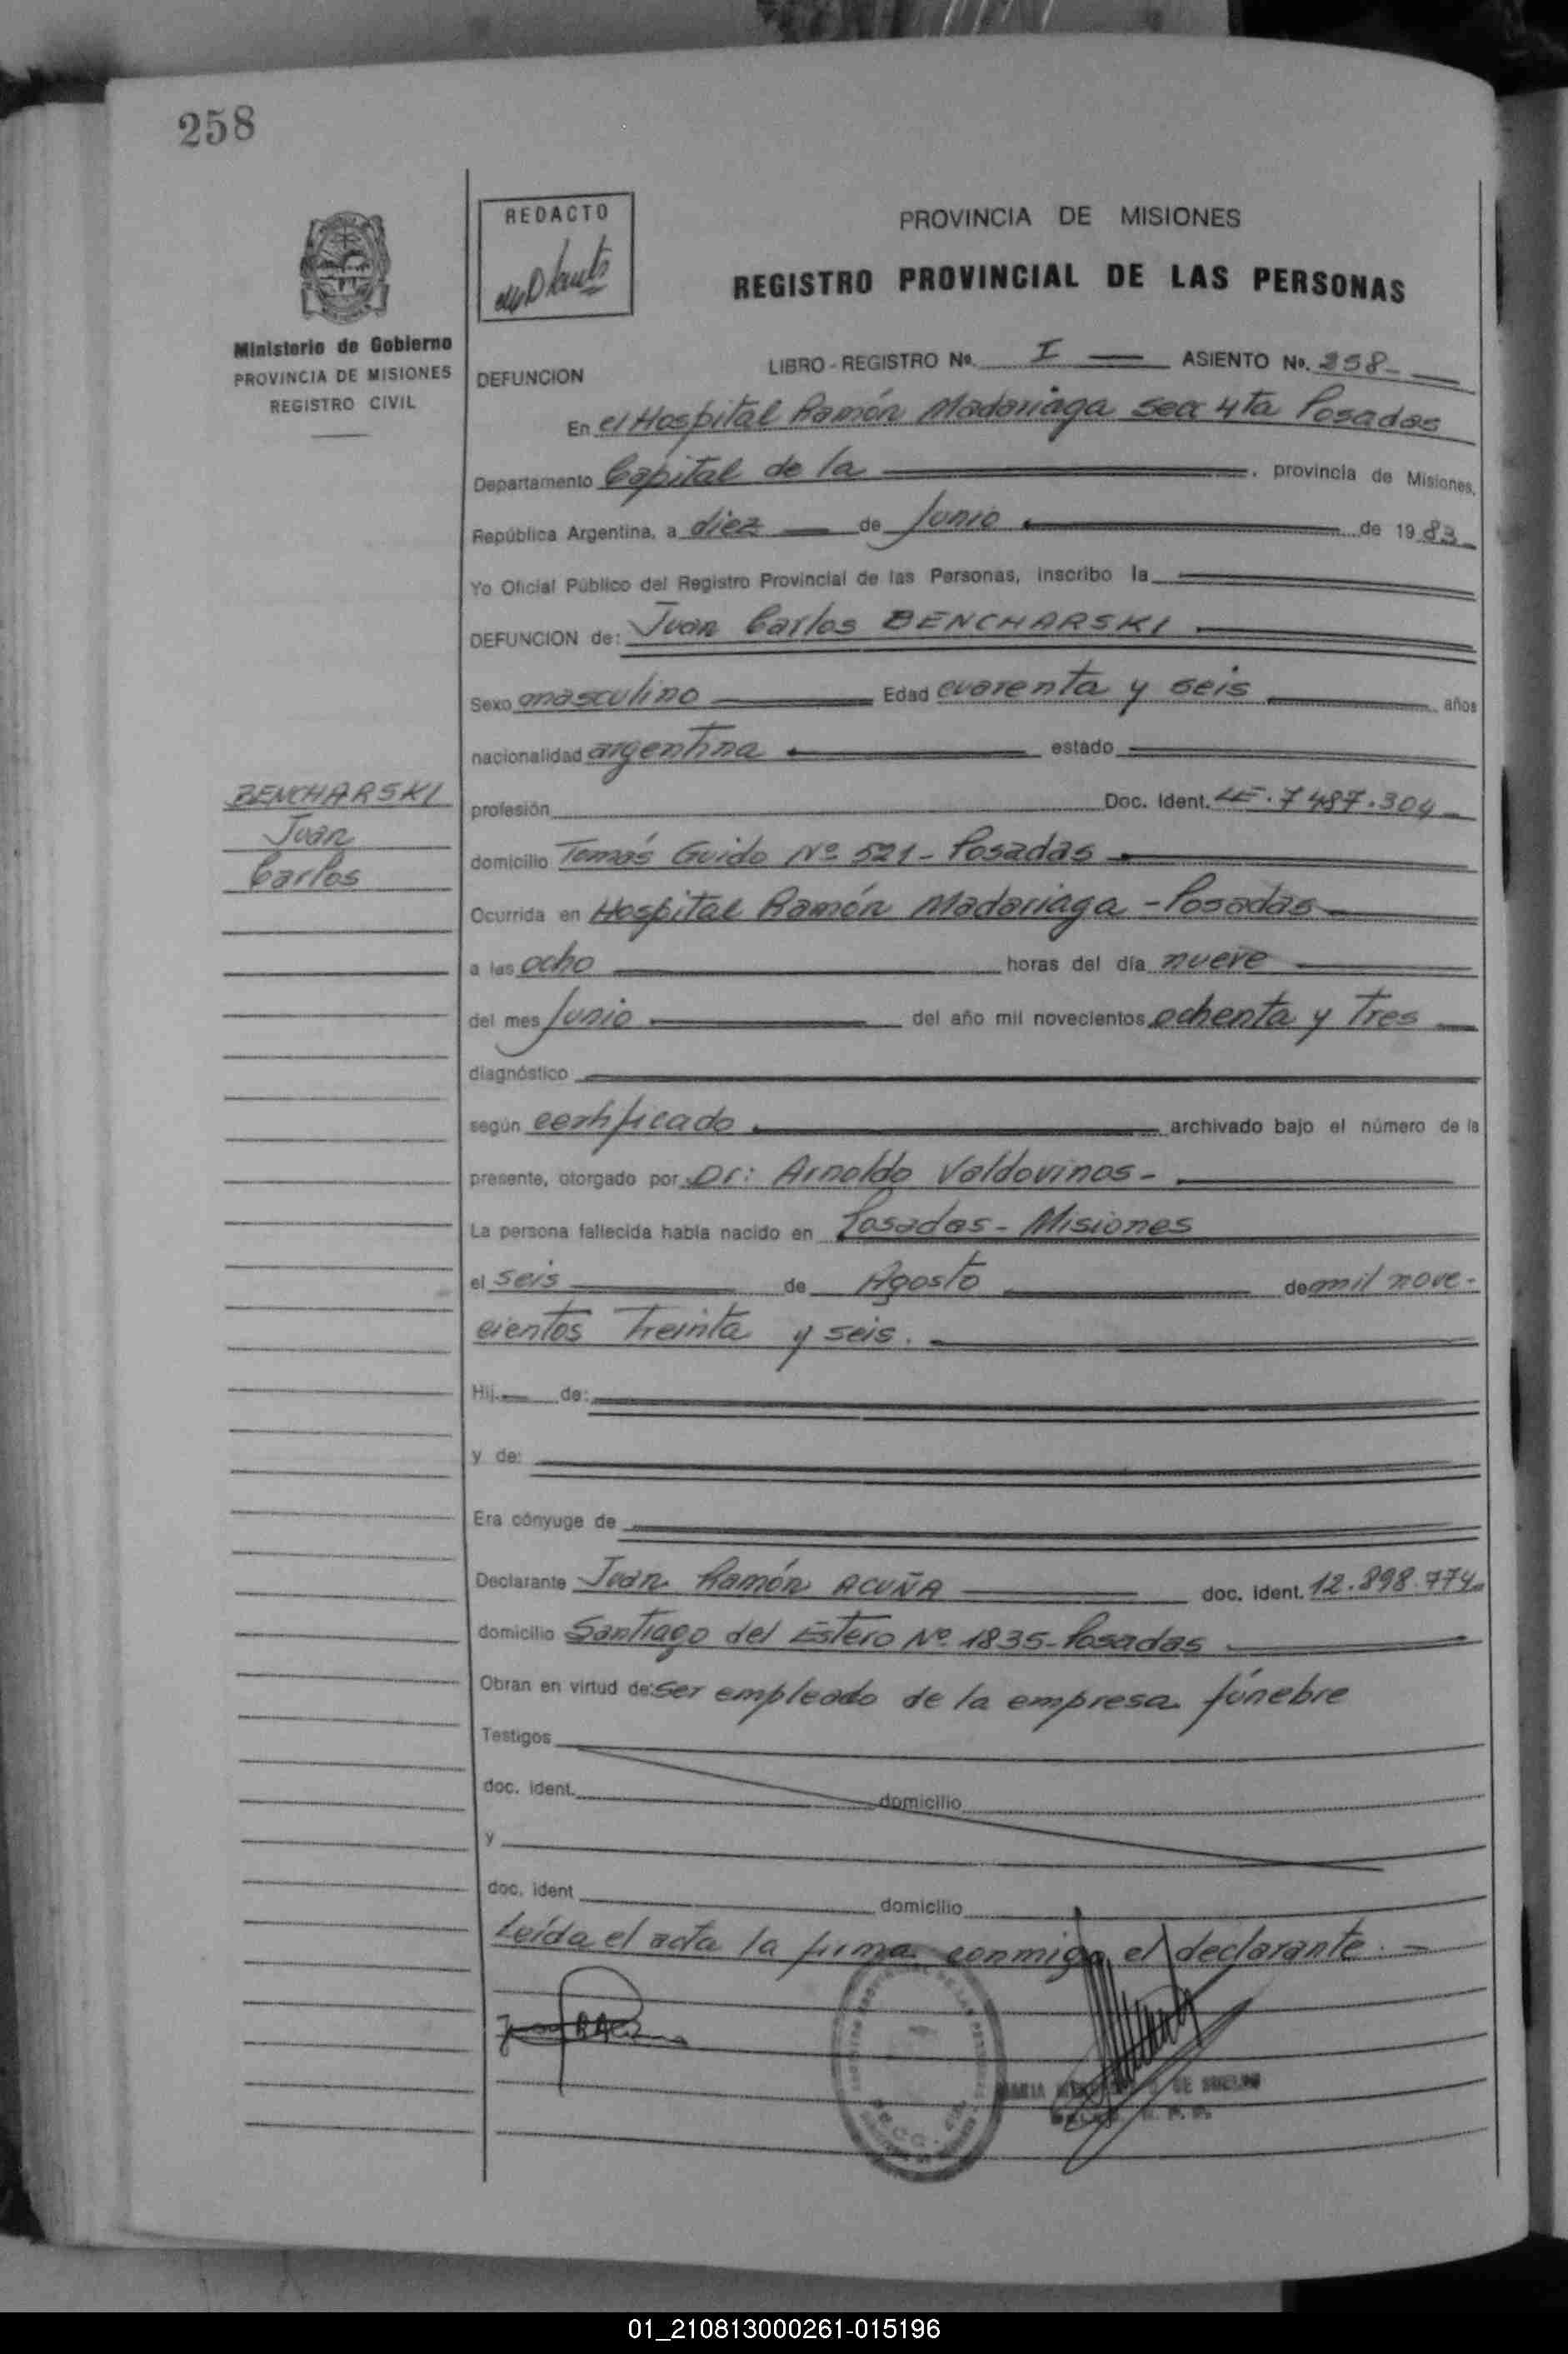 258
REDACTO
PROVINCIA DE MISIONES
REGISTRO PROVINCIAL DE LAS PERSONAS
Ministerio de Gobierno
PROVINCIA DE MISIONES
REGISTRO CIVIL
LIBRO - REGISTRO Nº. I ASIENTO Nº. 258-
DEFUNCION
En el Hospital Ramón Madariaga secc 4ta Posadas
Departamento Capital de la , provincia de Misiones,
República Argentina, a diez de Junio de 1983
Yo Oficial Público del Registro Provincial de las Personas, inscribo la
DEFUNCION de: Juan Carlos BENCHARSKI
Sexo masculino Edad cuarenta y seis años
nacionalidad argentina estado
BENCHARSKI
Juan
Carlos
profesión Doc. Ident. LE. 7487.304
domicilio Tomás Guido Nº 521- Posadas
Ocurrida en Hospital Ramón Madariaga - Posadas
a las ocho horas del día nueve
del mes Junio del año mil novecientos ochenta y Tres
diagnóstico
según certificado archivado bajo el número de la
presente, otorgado por Dr: Arnoldo Valdovinos-
La persona fallecida había nacido en Posadas - Misiones
el seis de Agosto de mil nove-
cientos Treinta y seis.
Hij de:
y de:
Era cónyuge de
Declarante Juan Ramón ACUÑA doc. ident. 12.898.774
domicilio Santiago del Estero Nº 1835- Posadas
Obran en virtud de: ser empleado de la empresa fúnebre
Testigos
doc. ident. domicilio
y
doc. ident domicilio
Leída el acta la firma conmigo el declarante. -
01_210813000261-015196